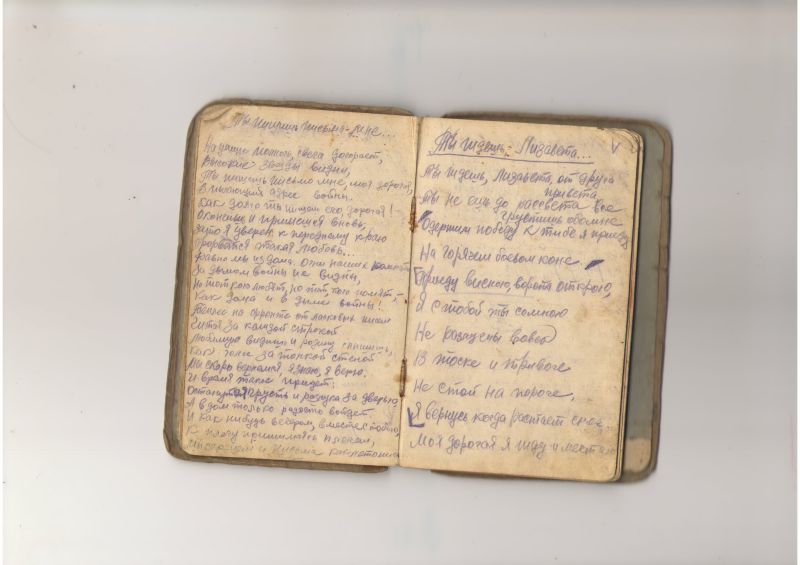 Ты пишешь письмо мне...
Высокие звезды видны,
Ты пишешь письмо мне, моя дорогая,
В пылающий адрес войны.
Как долго ты пишешь его, дорогая!
Окончишь и примешься вновь,
Зато я уверен к переднему краю
Прорвется такая любовь...
Давно мы из дома. Огни наших комнат
За дымом войны не видны,
Но тот кого любят, но тот, кого помнят
Как дома и в дыме войны!
Теплее на фронте от ласковых писем
Читая за каждой строкой
Любимую видишь и родину слышишь,
Как голос за тонкой стеной
Мы скоро вернемся, я знаю, я верю.
И время такое придет:
Останутся грусть и разлука за дверью
А в дом только радость войдет
И как нибудь вечером вместе с тобою
К плечу прижимаясь плечом,
Ты ждешь, Лизавета...
Ты ждешь, Лизавета, от друга
привета
Ты не спишь до рассвета все
грустишь обо мне
Одержим победу к тибе я приеду
На горячем боевом коне
Приеду весною, ворота открою,
Я с тобой ты со мною
Не
В тоске и тривоге
Не стой на пороге,
Я вернусь когда растает снег
Моя дорогая я жду и мечтаю